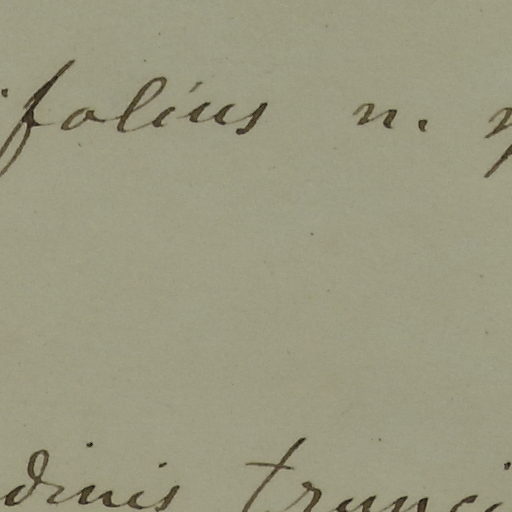 ifolius n.
dinis trunci